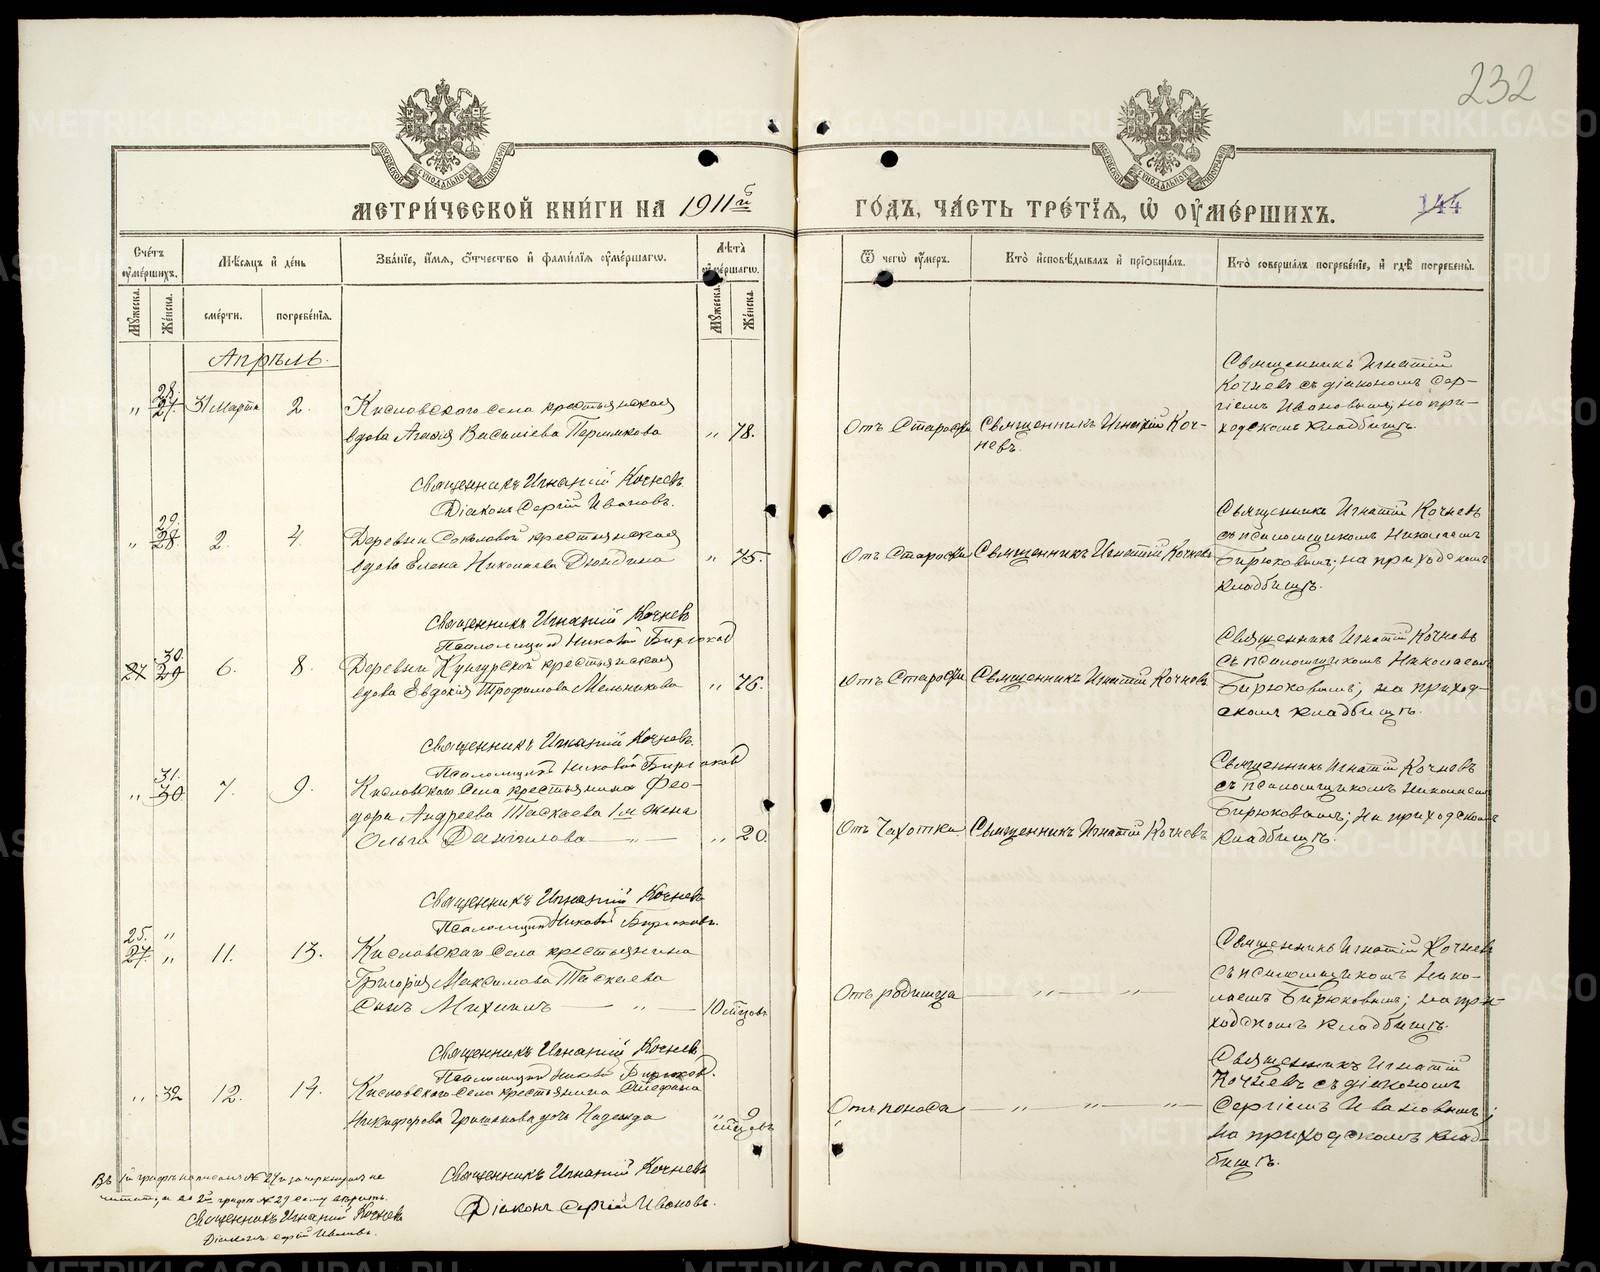 232
МЕТРИ́ЧЕСКОЙ КНИ́ГИ НА 1911й
ГО́ДЪ, ЧА́СТЬ ТРЕ́ТЇЯ, Ѡ҆ ОУ҆МЕ́РШИХЪ.
144
Сче́тъ оу҆ме́ршихъ.
Мѣ́сяцъ и҆ де́нь
Зва́нїе, и҆́мя, ѻ҆́тчество и҆ фами́лїя оу҆ме́ршагѡ.
Лѣ́та оу҆ме́ршагѡ.
Ѿ чегѡ̀ оу҆́меръ.
Кто̀ и҆сповѣ́дывалъ и҆ прїѡбща́лъ.
Кто̀ соверша́лъ погребе́нїе, и҆ гдѣ̀ погребены̀.
Му́жеска.
Же́нска.
сме́рти.
погребе́нїя.
Му́жеска.
Же́нска.
Апрѣль.
„ 28. 27. 31 Марта 2.
Кисловского села крестьянская
вдова Агафія Васильева Пермякова „ 78.
Отъ Старости
Священникъ Игнатій Коч-
невъ.
Священникъ Игнатій
Кочневъ съ діакономъ Сер-
гіемъ Ивановымъ, на при-
ходскомъ кладбищѣ.
Священникъ Игнатій Кочневъ
Діаконъ Сергій Ивановъ.
„ 29. 28 2. 4.
Деревни Соколовой крестьянская
вдова Елена Николаева Дюндина „ 75.
Отъ Старости
Священникъ Игнатій Кочневъ
Священникъ Игнатій Кочневъ
съ псаломщикомъ Николаемъ
Бирюковымъ; на приходскомъ
кладбищѣ.
Священникъ Игнатій Кочневъ
Псаломщикъ Николай Бирюковъ
27 30. 29 6. 8.
Деревни Кунгурской крестьянская
вдова Евдокія Трофимова Мельникова „ 76.
Отъ Старости
Священникъ Игнатій Кочневъ
Священникъ Игнатій Кочневъ
съ псаломщикомъ Николаемъ
Бирюковымъ, на приход-
скомъ кладбищѣ.
Священникъ Игнатій Кочневъ.
Псаломщикъ Николай Бирюковъ
„ 31. 30 7. 9.
Кисловского села крестьянина Фео-
дора Андреева Таскаева 1й жена
Ольга Даніилова — „ — „ 20.
Отъ Чахотки
Священникъ Игнатій Кочневъ
Священникъ Игнатій Кочневъ
съ псаломщикомъ Николаемъ
Бирюковымъ; на приходскомъ
кладбищѣ.
Священникъ Игнатій Кочневъ
Псаломщикъ Николай Бирюковъ.
25. „
27. „ 11. 13.
Кисловскаго села крестьянина
Григорія Максимова Таскаева
сынъ Михаилъ — „ — 10 мѣсяцовъ
Отъ родимца — „ — „ —
Священникъ Игнатій Кочневъ
съ псаломщикомъ Нико-
лаемъ Бирюковымъ; на при-
ходскомъ кладбищѣ.
Священникъ Игнатій Кочневъ,
Псаломщикъ Николай Бирюковъ.
„ 32 12. 14.
Кисловского села крестьянина Стефана
Никифорова дочь Надежда „ 9
мѣсяцовъ
Отъ поноса — „ — „ — „ —
Священникъ Игнатій
Кочневъ съ діакономъ
Сергіемъ Ивановымъ;
на приходскомъ клад-
бищѣ.
Священникъ Игнатій Кочневъ
Діаконъ Сергій Ивановъ.
Въ 1й графѣ написан. № 27 и зачеркнутый не
читать, а во 2й графѣ № 29
Священникъ Игнатій Кочневъ
Діаконъ Сергій Ивановъ.
METRIKI.GASO-URAL.RU